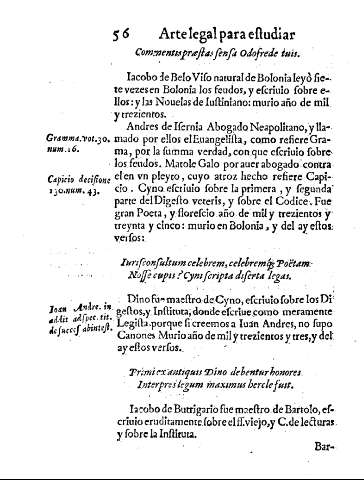 56 Arte legal para eſtudiar
Commentis præſtas ſenſa Odofrede tuis.
Iacobo de Belo Viſo natural de Bolonia leyò ſie-
te vezes en Bolonia los feudos, y eſcriuio ſobre e-
llos: y las Nouelas de Iuſtiniano: murio año de mil
y trezientos.
Andres de Iſernia Abogado Neapolitano, y lla-
Gramma. vot. 30.
num. 16.
mado por ellos el Euangeliſta, como refiere Gra-
ma, por la ſumma verdad, con que eſcriuio ſobre
los feudos. Matole Galo por auer abogado contra
Capicio deciſione
130. num. 43.
el en vn pleyto, cuyo atroz hecho refiere Capi-
cio. Cyno eſcriuio ſobre la primera, y ſegunda
parte del Digeſto veteris, y ſobre el Codice. Fue
gran Poeta, y florеſcio año de mil y trezientos y
treynta y cinco: murio en Bolonia, y del ay eſtos
verſos:
Iuriſconſultum celebrem, celebremq; Poëtam
Noſſe cupis? Cyni ſcripta diſerta legas.
Ioan Andre. in
addit ad ſpec. tit.
de ſucceſ ab inteſt.
Dino fue maeſtro de Cyno, eſcriuio ſobre los Di
geſtos, y Inſtituta, donde eſcriue como meramente
Legiſta. porque ſi creemos a Iuan Andres, no ſupo
Canones Murio año de mil y trezientos y tres, y del
ay eſtos verſos.
Primi ex antiquis Dino debentur honores
Interpres legum maximus hercle fuit.
Iacobo de Butrigario fue maeſtro de Bartolo, eſ-
criuio eruditamente ſobre el ff. viejo, y C. de lecturas
y ſobre la Inſtituta.
Bar-